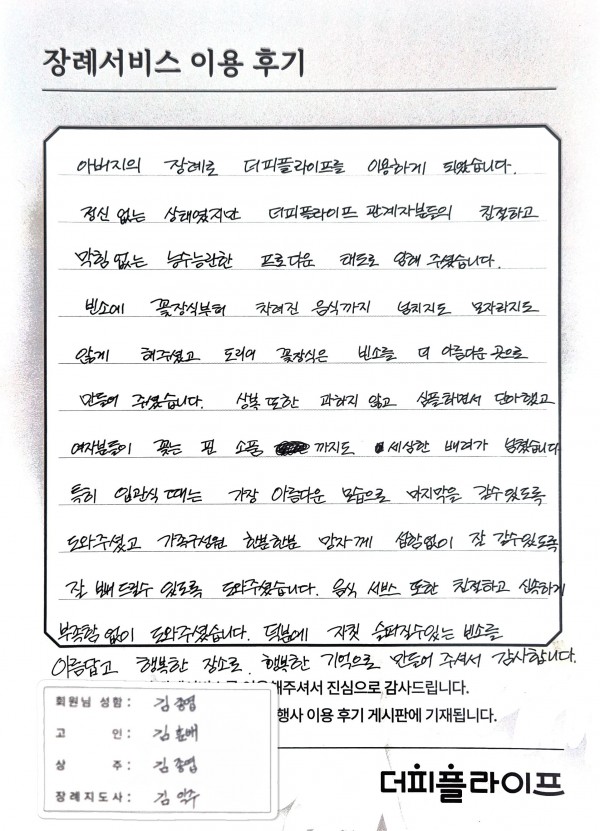 장례서비스 이용 후기
아버지의 장례로 더피플라이프를 이용하게 되었습니다.
정신 없는 상태였지만 더피플라이프 관계자분들의 친절하고
막힘없는 능수능란한 프로다운 태도로 임해 주셨습니다.
빈소에 꽃장식부터 차려진 음식까지 넘치지도 모자라지도
않게 해주셨고 도리어 꽃장식은 빈소를 더 아름다운 곳으로
만들어 주셨습니다. 상복 또한 과하지 않고 심플하면서 단아했고
여자분들이 꽂는 핀 소품 까지도 세심한 배려가 넘쳤습니다
특히 입관식 때는 가장 아름다운 모습으로 마지막을 갈수있도록
도와주셨고 가족구성원 한분한분 망자께 섭함없이 잘 갈수있도록
잘 보내 드릴수 있도록 도와주셨습니다. 음식 서비스 또한 친절하고 신속하게
부족함 없이 도와주셨습니다. 덕분에 자칫 슬퍼질수있는 빈소를
아름답고 행복한 장소로, 행복한 기억으로 만들어 주셔서 감사합니다.
해주셔서 진심으로 감사드립니다.
행사 이용 후기 게시판에 기재됩니다.
회원님 성함 : 김종엽
고 인 : 김
상 주 : 김종엽
장례지도사 : 김
더피플라이프